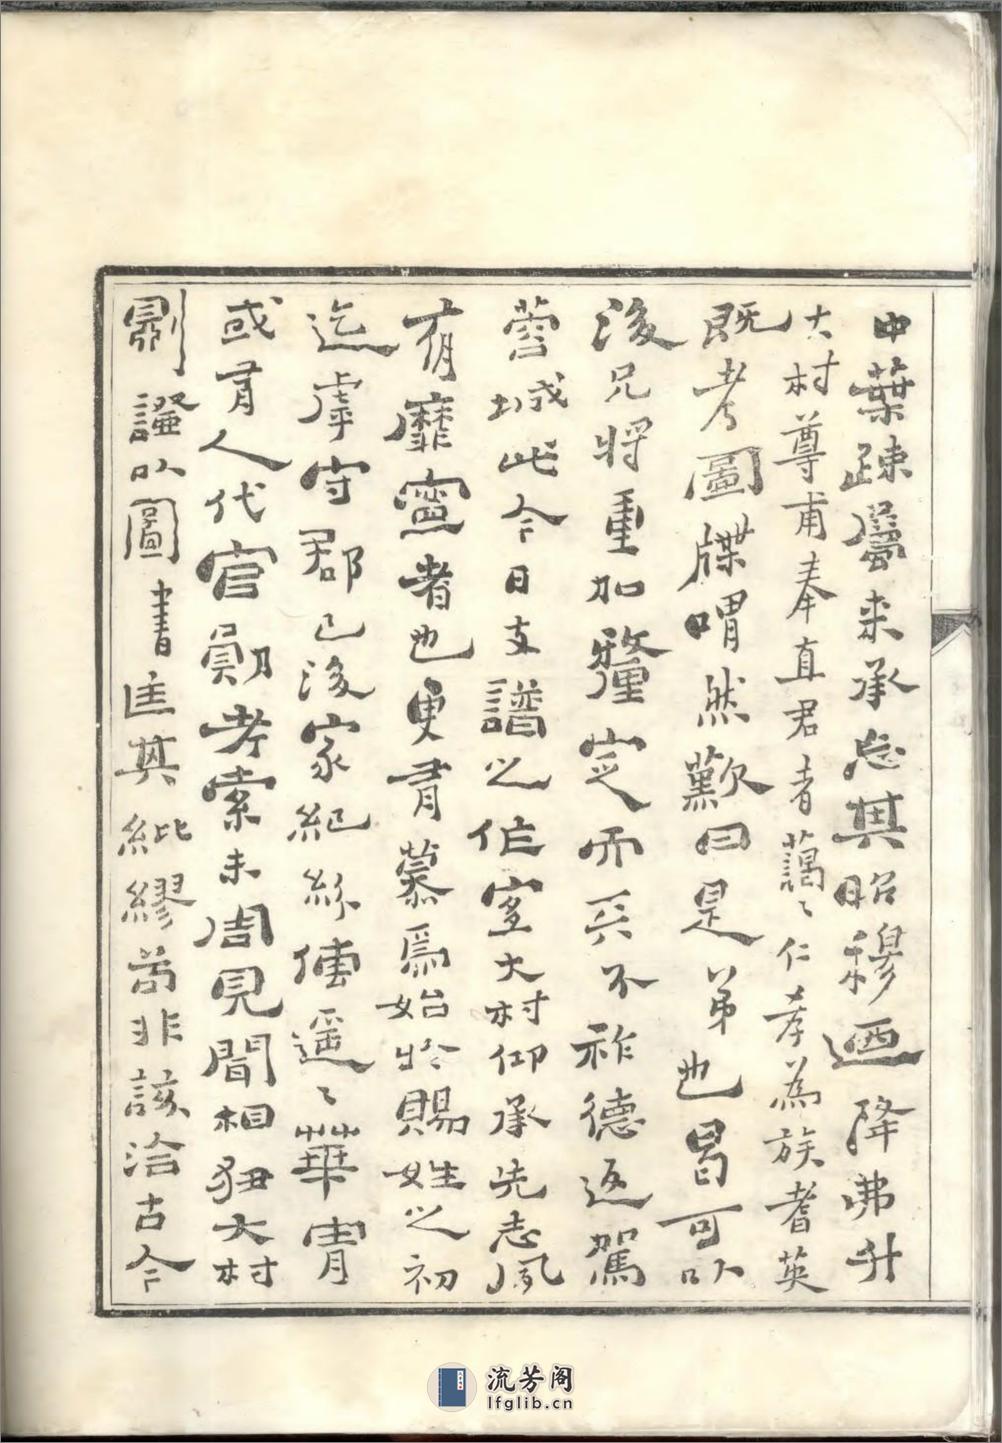 中葉疎屬來承忘其昭穆迺降弗升
大村尊甫奉直君者藹〻仁孝為族耆英
既考圖牒喟然歎曰是弟也曷可以
後兄將重加釐定而天不祚德返駕
蓉城此今日支譜之作寔大村仰承先志夙
有靡寍者也更有慕焉始於賜姓之初
迄虖守郡已後家紀絲傳遥〻華胄
或有人代官勛考索未周見聞相狃大村
劚證以圖書匡其紕繆苟非該洽古今
流芳阁
lfglib.cn